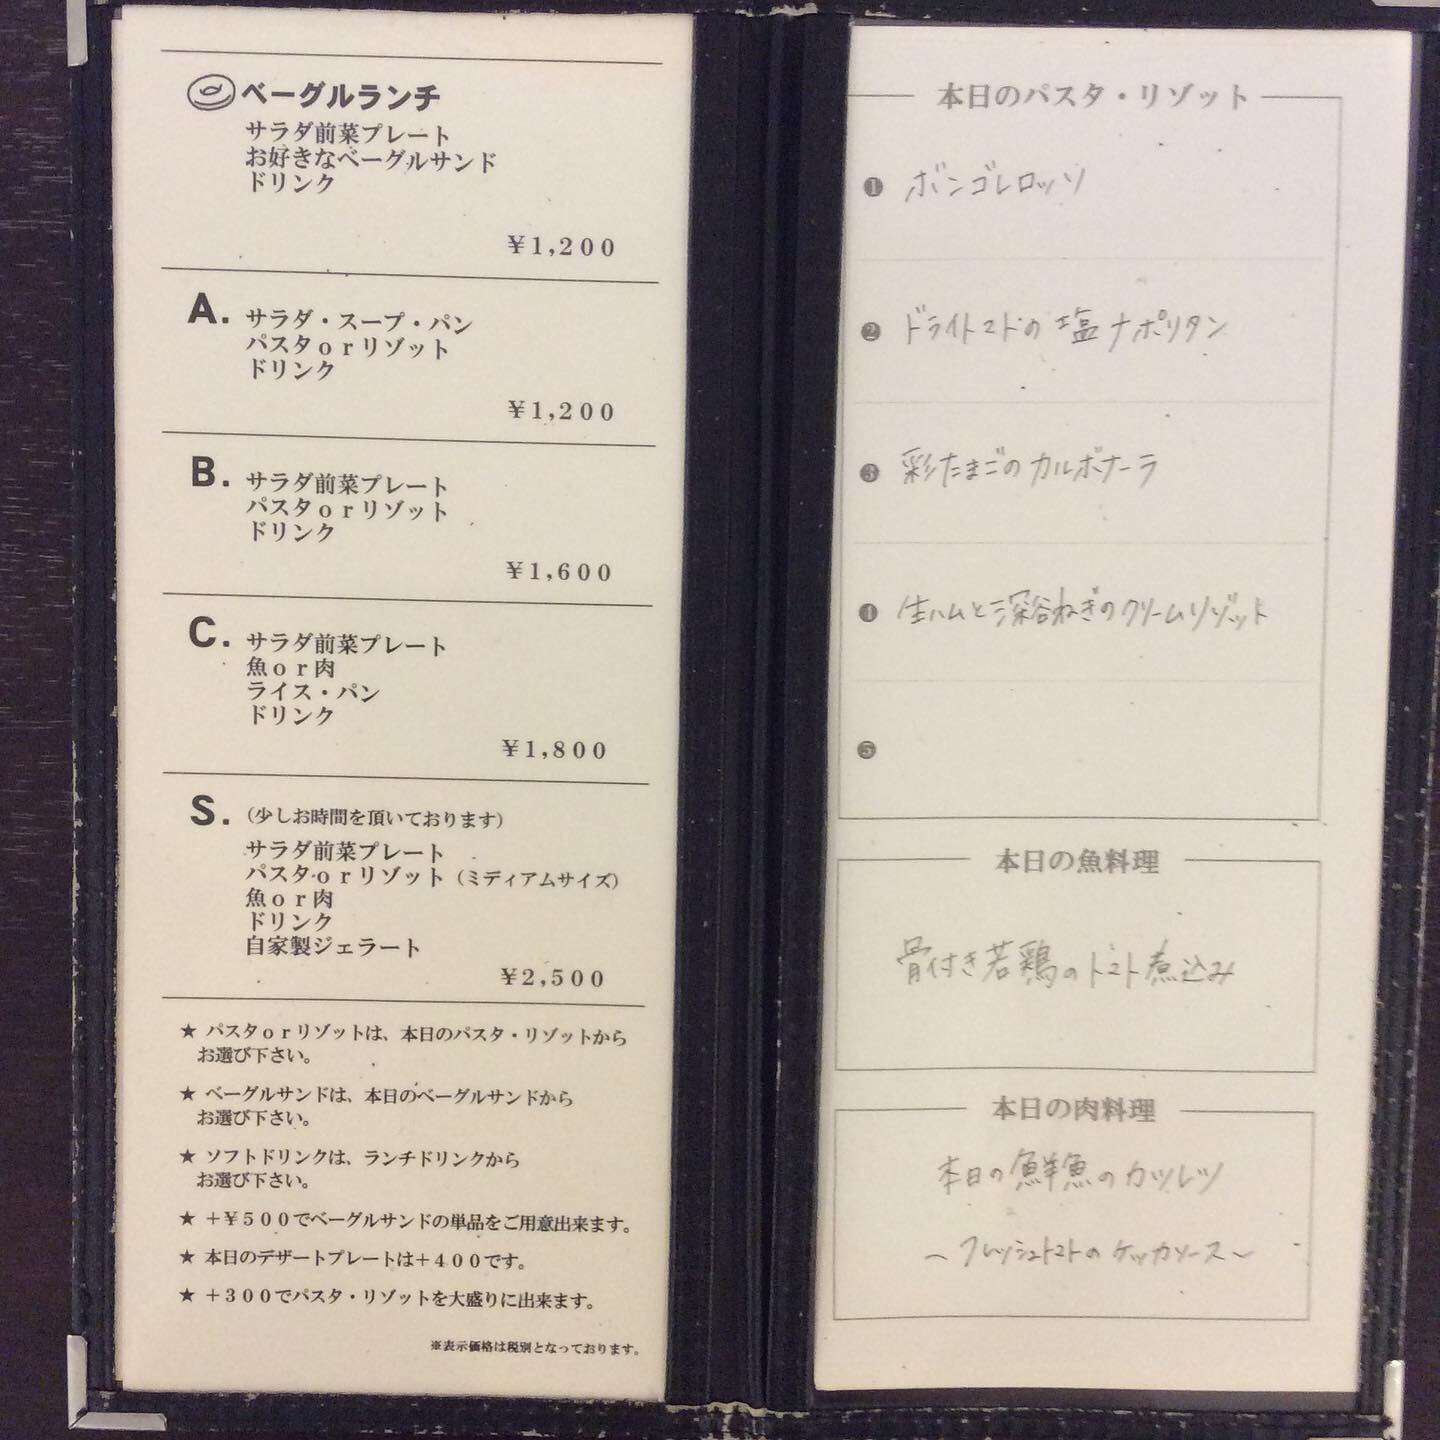 ベーグルランチ
サラダ前菜プレート
お好きなベーグルサンド
ドリンク
¥1,200
A. サラダ・スープ・パン
パスタorリゾット
ドリンク
¥1,200
B. サラダ前菜プレート
パスタorリゾット
ドリンク
¥1,600
C. サラダ前菜プレート
魚or肉
ライス・パン
ドリンク
¥1,800
S. (少しお時間を頂いております)
サラダ前菜プレート
パスタorリゾット(ミディアムサイズ)
魚or肉
ドリンク
自家製ジェラート
¥2,500
★ パスタorリゾットは、本日のパスタ・リゾットから
お選び下さい。
★ ベーグルサンドは、本日のベーグルサンドから
お選び下さい。
★ ソフトドリンクは、ランチドリンクから
お選び下さい。
★ +¥500でベーグルサンドの単品をご用意出来ます。
★ 本日のデザートプレートは+400です。
★ +300でパスタ・リゾットを大盛りに出来ます。
※表示価格は税別となっております。
本日のパスタ・リゾット
❶ ボンゴレロッソ
❷ ドライトマトの塩ナポリタン
❸ 彩たまごのカルボナーラ
❹ 生ハムと深谷ねぎのクリームリゾット
❺
本日の魚料理
骨付き若鶏のトマト煮込み
本日の肉料理
本日の鮮魚のカツレツ
～フレッシュトマトのケッカソース～